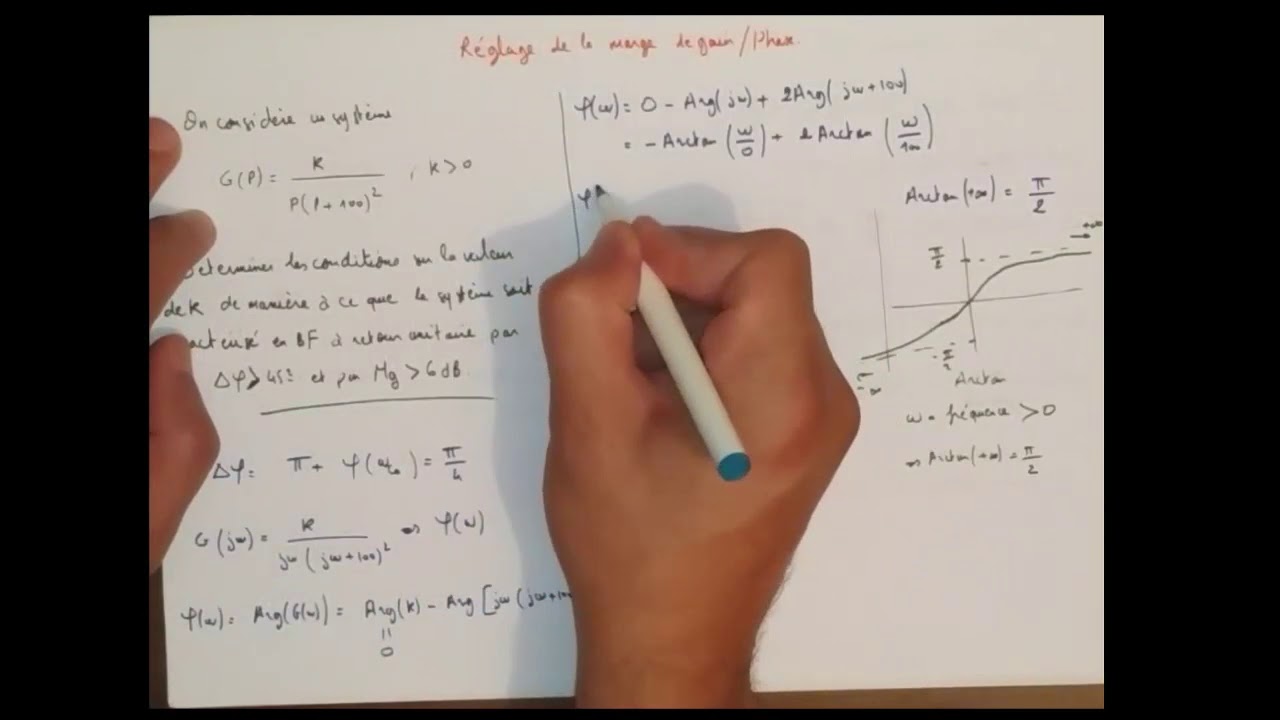 Réglage de la marge de gain/Phase.
On considère un système
G(P) = K / P(P+100)² , K > 0
Determiner les conditions sur la valeur
de K de manière à ce que le système soit
en BF à retour unitaire par
Δφ > 45° et par Mg > 6 dB.
Δφ = π + φ(ω) = π/4
G(jω) = K / jω(jω+100)² ⇒ φ(ω)
φ(ω) = Arg(G(ω)) = Arg(K) - Arg[jω(jω+100
=
0
φ(ω) = 0 - Arg(jω) + 2Arg(jω+100)
= -Arctan(ω/0) + 2 Arctan(ω/100)
φ
Arctan(+∞) = π/2
+∞
π/2
-π/2
-∞
Arctan
ω = fréquence > 0
⇒ Arctan(+∞) = π/2